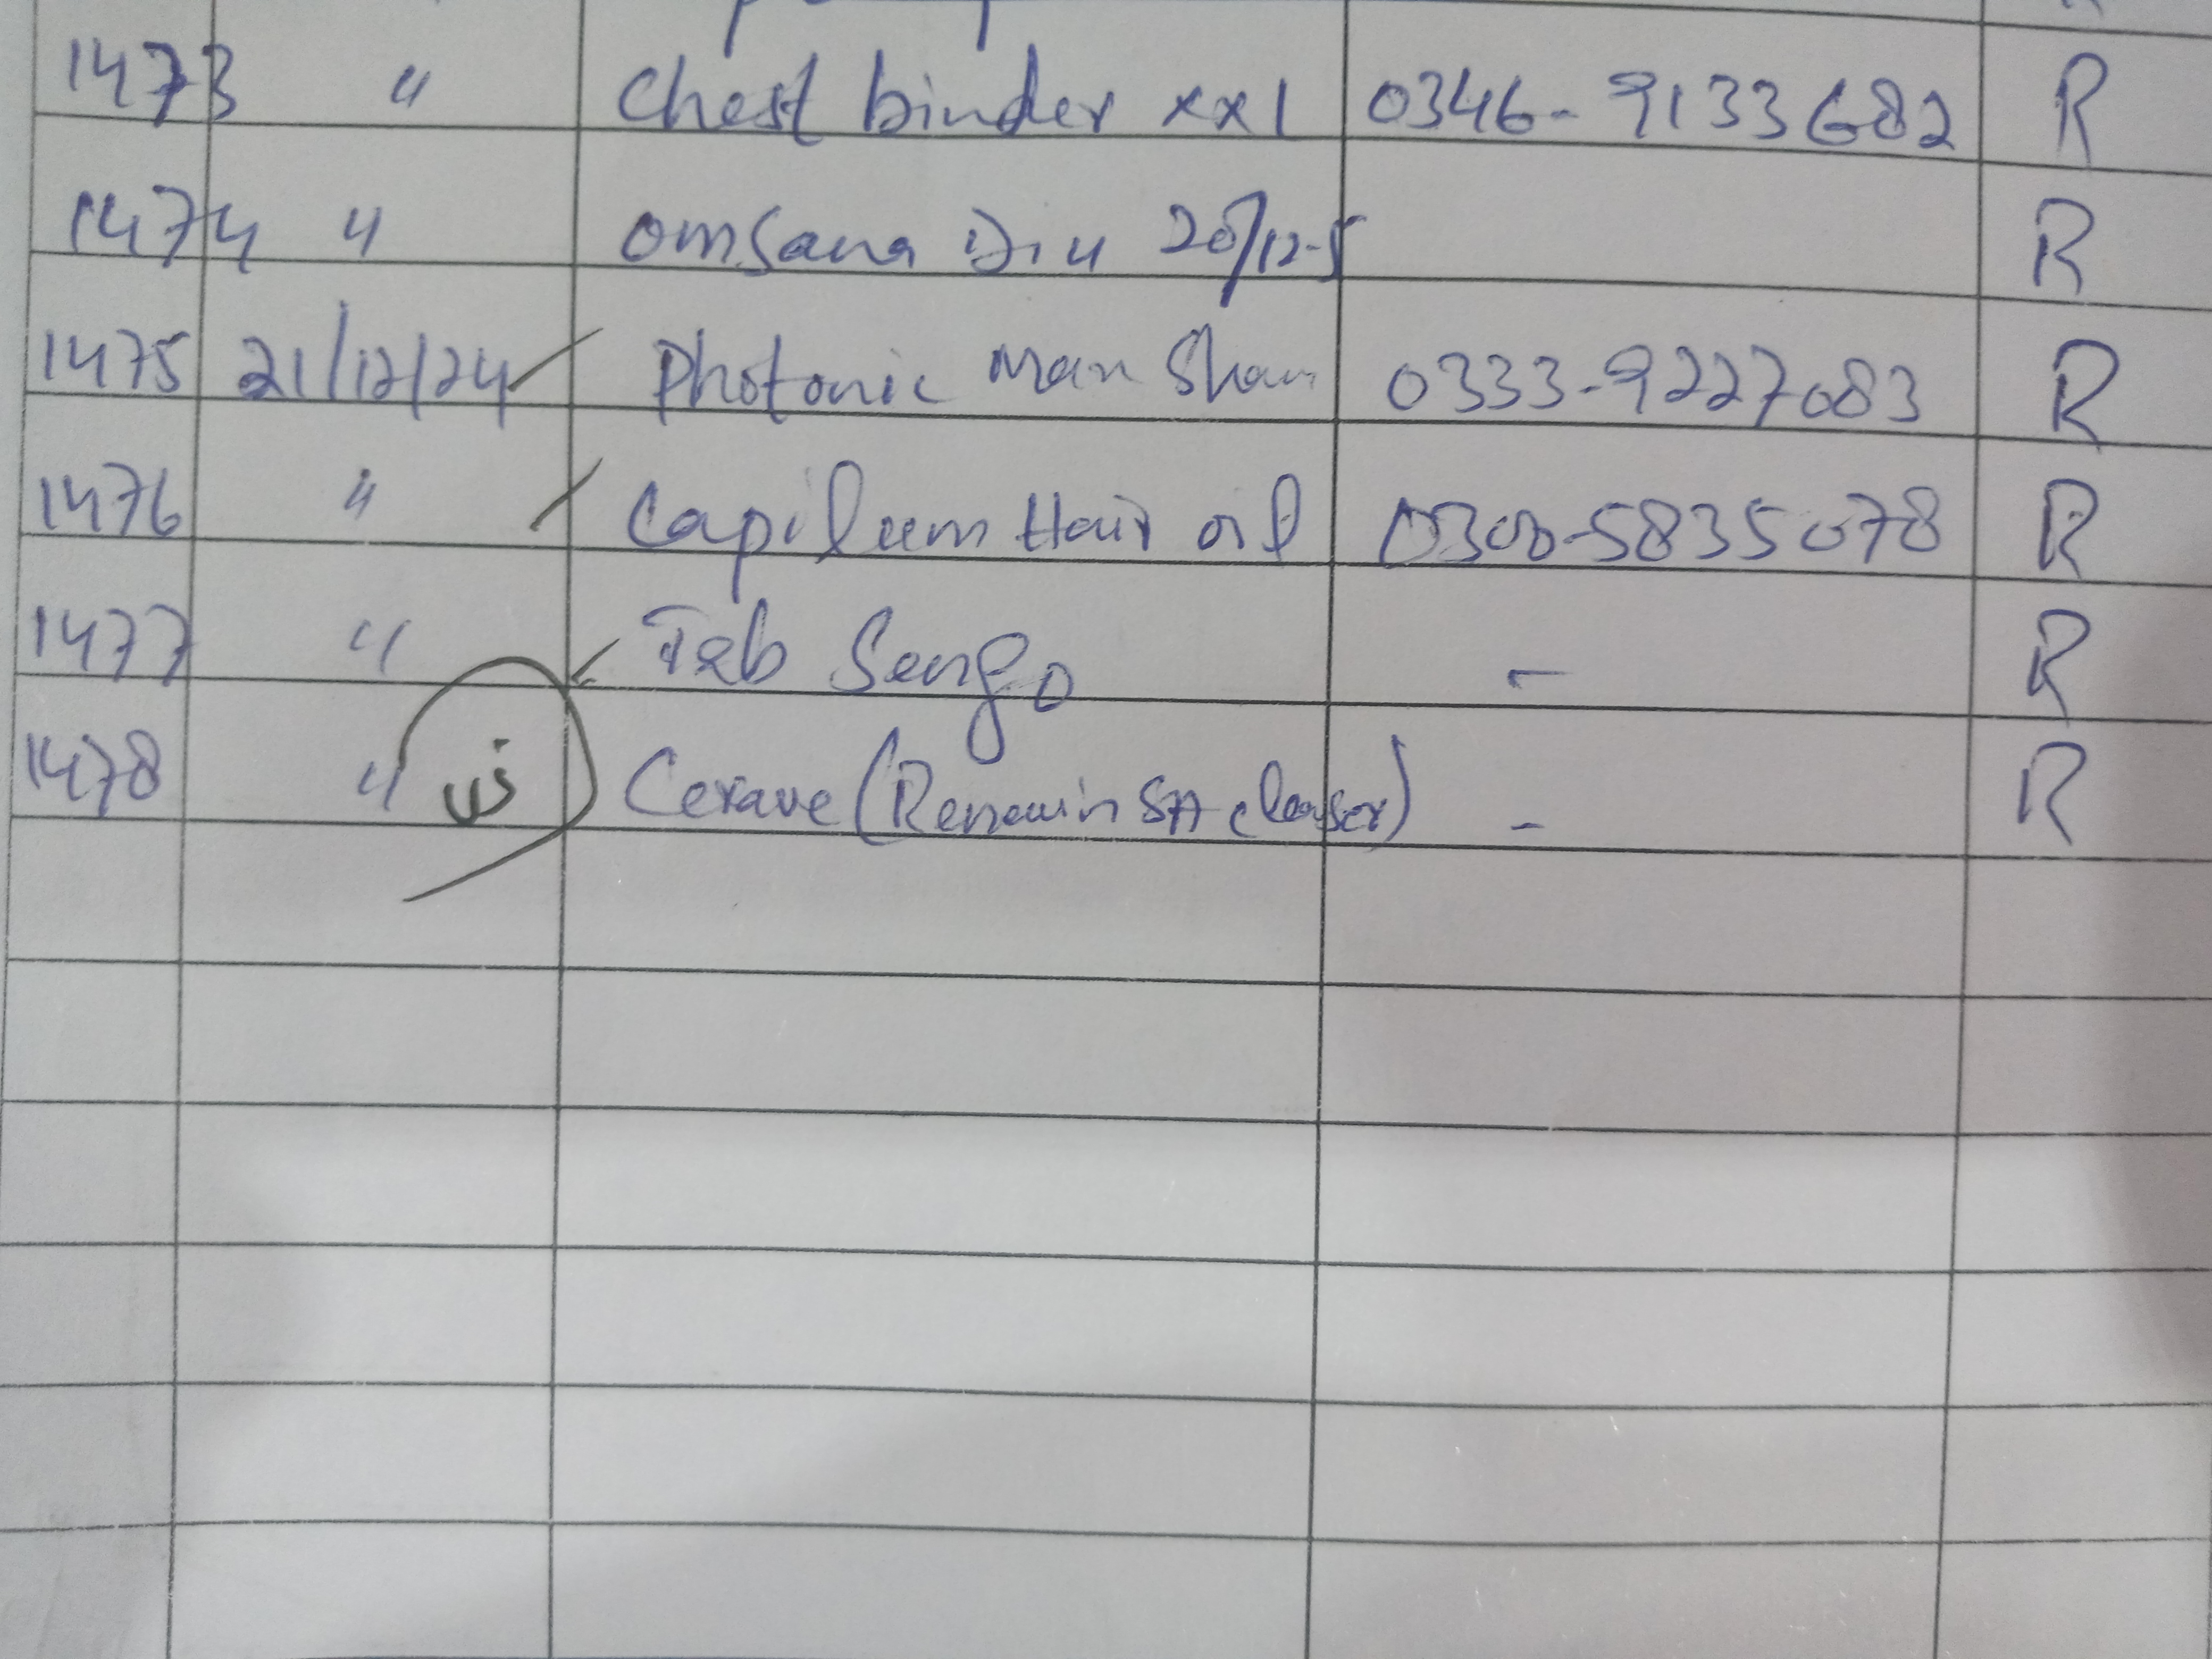 1473 " Chest binder xxl 0346-9133682 R
1474 " Omsana 20/12.5 R
1475 21/12/24 Photonic Man Sham 0333-9227083 R
1476 " Capileum Hair oil 0300-5835078 R
1477 " Tab Sengo - R
1478 " Cerave (Renewin SA clenser) - R